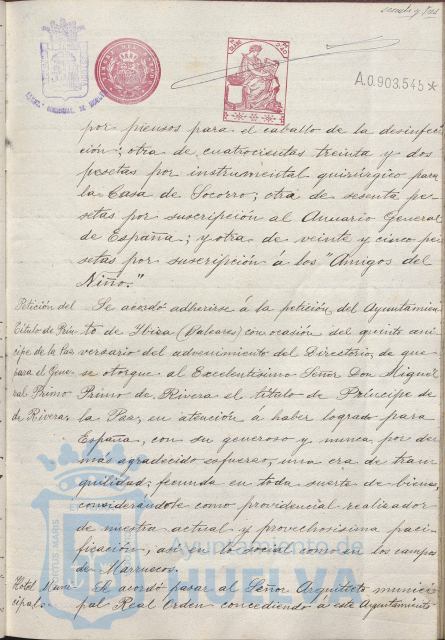 sesenta y tres
A.0.903.545 *
por piensos para el caballo de la desinfec-
ción; otra de cuatrocientas treinta y dos
pesetas por instrumental quirúrgico para
la Casa de Socorro; otra de sesenta pe-
setas por suscripción al Anuario General
de España; y otra de veinte y cinco pe-
setas por suscripción á los "Amigos del
Niño."
Petición del
Título de Prín-
cipe de la Paz
para el Gene-
ral Primo
de Rivera.
Se acordó adherirse á la petición del Ayuntamien-
to de Ibiza (Baleares) con ocasión del quinto ani-
versario del advenimiento del Directorio, de que
se otorgue al Excelentísimo Señor Don Miguel
Primo de Rivera el título de Príncipe de
la Paz, en atención á haber logrado para
España, con su generoso y nunca por de-
más agradecido esfuerzo, una era de tran-
quilidad, fecunda en toda suerte de bienes,
considerándole como providencial realizador
de nuestra actual y provechosísima paci-
ficación, así en lo social como en los campos
de Marruecos.
Hotel Muni-
cipal.
Se acordó pasar al Señor Arquitecto munici-
pal Real Orden concediendo á este Ayuntamiento
Ayuntamiento de
HUELVA